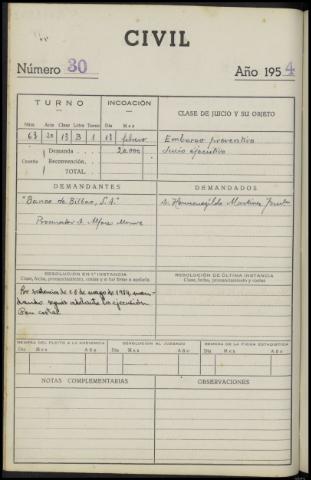 CIVIL
Número 30 Año 1954
TURNO INCOACIÓN CLASE DE JUICIO Y SU OBJETO
Núm. Acta Clase Letra Turno Día Mes
63 20 13 B 1 13 febrero Embargo preventivo
Demanda . . . 20.000 Juicio ejecutivo
Cuantía Reconvención.
TOTAL
DEMANDANTES DEMANDADOS
"Banco de Bilbao, S.A." D. Hermenegildo Martínez
Procurador Sr. Alfaro
RESOLUCIÓN EN 1ª INSTANCIA RESOLUCIÓN DE ÚLTIMA INSTANCIA
Clase, fecha, pronunciamiento, costas y si fué firme o apelada Clase, fecha, pronunciamiento y costas
Por sentencia de 18 de mayo de 1954 man-
dando seguir adelante la ejecución
Con costas
REMESA DEL PLEITO A LA AUDIENCIA DEVOLUCIÓN AL JUZGADO REMESA DE LA FICHA ESTADÍSTICA
Día Mes Año Día Mes Año Día Mes Año
NOTAS COMPLEMENTARIAS OBSERVACIONES